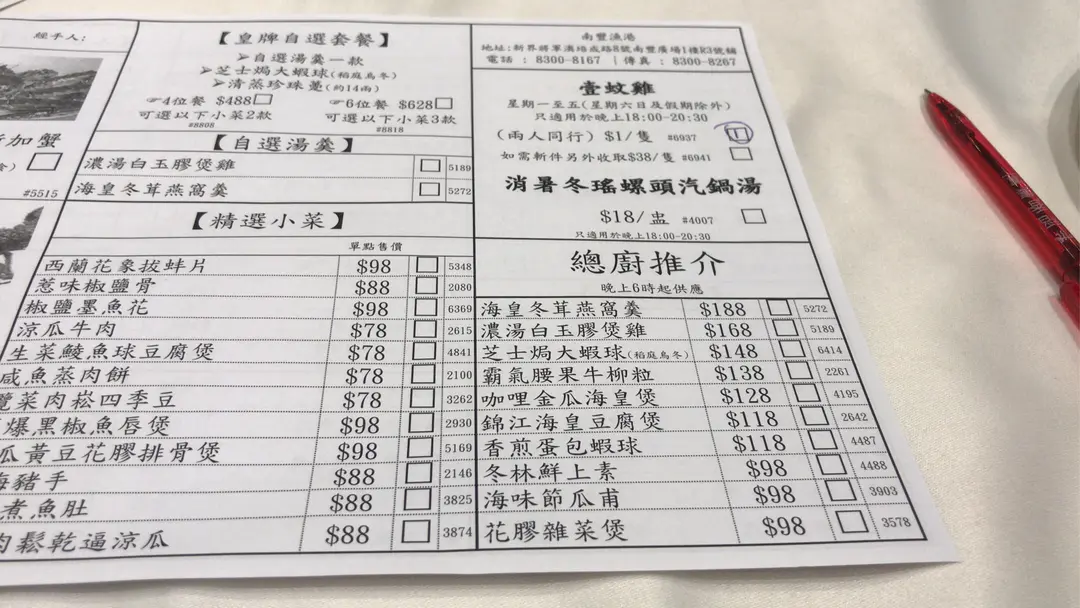 經手人:
加蟹
#5515
【皇牌自選套餐】
➢自選湯羹一款
➢芝士焗大蝦球(稻庭烏冬)
➢清蒸珍珠躉(約14兩)
☞4位餐 $488□
可選以下小菜2款
#8808
☞6位餐 $628□
可選以下小菜3款
#8818
【自選湯羹】
濃湯白玉膠煲雞 □ 5189
海皇冬茸燕窩羹 □ 5272
【精選小菜】
單點售價
西蘭花象拔蚌片 $98 □ 5348
惹味椒鹽骨 $88 □ 2080
椒鹽墨魚花 $98 □ 6369
涼瓜牛肉 $78 □ 2615
生菜鯪魚球豆腐煲 $78 □ 4841
咸魚蒸肉餅 $78 □ 2100
欖菜肉崧四季豆 $78 □ 3262
爆黑椒魚唇煲 $98 □ 2930
瓜黃豆花膠排骨煲 $98 □ 5169
豬手 $88 □ 2146
煮魚肚 $88 □ 3825
肉鬆乾逼涼瓜 $88 □ 3874
南豐漁港
地址:新界將軍澳培成路8號南豐廣場1樓R3號舖
電話 : 8300-8167 | 傳真 : 8300-8267
壹蚊雞
星期一至五(星期六日及假期除外)
只適用於晚上18:00-20:30
(兩人同行) $1/隻 #6937 □ 1
如需斬件另外收取$38/隻 #6941 □
消暑冬瑤螺頭汽鍋湯
$18/盅 #4007 □
只適用於晚上18:00-20:30
總廚推介
晚上6時起供應
海皇冬茸燕窩羹 $188 □ 5272
濃湯白玉膠煲雞 $168 □ 5189
芝士焗大蝦球(稻庭烏冬) $148 □ 6414
霸氣腰果牛柳粒 $138 □ 2261
咖哩金瓜海皇煲 $128 □ 4195
錦江海皇豆腐煲 $118 □ 2642
香煎蛋包蝦球 $118 □ 4487
冬林鮮上素 $98 □ 4488
海味節瓜甫 $98 □ 3903
花膠雜菜煲 $98 □ 3578